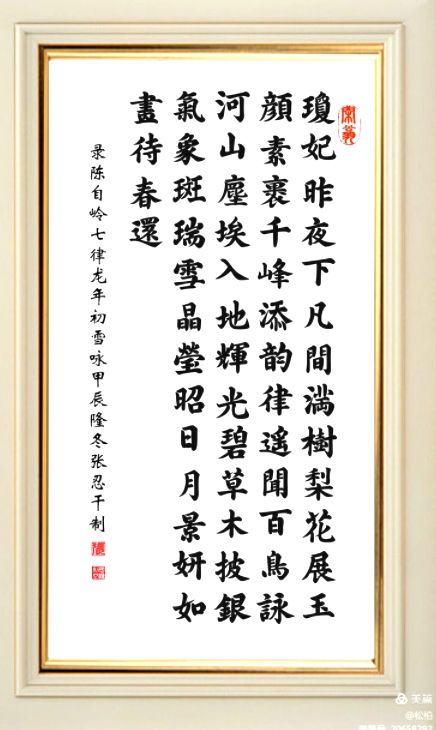 瓊妃昨夜下凡間満樹梨花展玉
顏素裹千峰添韵律遥聞百鳥詠
河山塵埃入地輝光碧草木披銀
氣象斑瑞雪晶瑩昭日月景妍如
畫待春還
录陈自岭七律龙年初雪咏甲辰隆冬张忍干制
美篇
@松柏